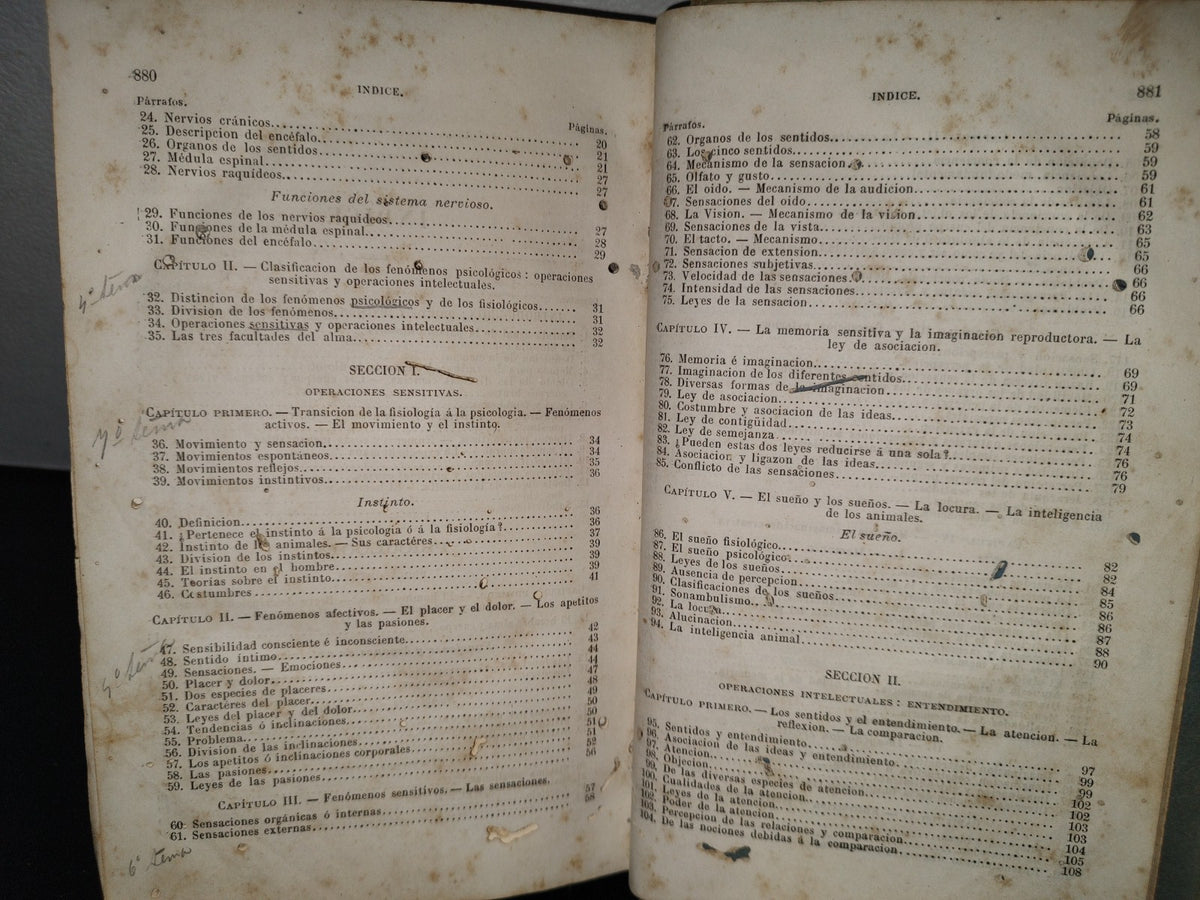 880
INDICE.
Párrafos.
Páginas.
24. Nervios cránicos 20
25. Descripcion del encéfalo. 21
26. Organos de los sentidos 21
27. Médula espinal 27
28. Nervios raquídeos. 27
Funciones del sistema nervioso.
29. Funciones de los nervios raquídeos 27
30. Funciones de la médula espinal. 28
31. Funciones del encéfalo. 29
CAPÍTULO II. — Clasificacion de los fenómenos psicológicos: operaciones
sensitivas y operaciones intelectuales.
5º tema
32. Distincion de los fenómenos psicológicos y de los fisiológicos. 31
33. Division de los fenómenos 31
34. Operaciones sensitivas y operaciones intelectuales. 32
35. Las tres facultades del alma. 32
SECCION I.
OPERACIONES SENSITIVAS.
CAPÍTULO PRIMERO. — Transicion de la fisiología á la psicologia. — Fenómenos
activos. — El movimiento y el instinto.
tema
36. Movimiento y sensacion. 34
37. Movimientos espontáneos 34
38. Movimientos reflejos 35
39. Movimientos instintivos 36
Instinto.
40. Definicion. 36
41. ¿Pertenece el instinto á la psicología ó á la fisiología? 36
42. Instinto de los animales. — Sus caractéres. 37
43. Division de los instintos. 39
44. El instinto en el hombre 39
45. Teorías sobre el instinto. 39
46. Costumbres 41
CAPÍTULO II. — Fenómenos afectivos. — El placer y el dolor. — Los apetitos
y las pasiones.
47. Sensibilidad consciente é inconsciente. 42
48. Sentido íntimo. 43
49. Sensaciones. — Emociones 44
50. Placer y dolor. 44
51. Dos especies de placeres 47
52. Caractéres del placer. 48
53. Leyes del placer y del dolor 49
54. Tendencias ó inclinaciones 50
55. Problema. 50
56. Division de las inclinaciones 51
57. Los apetitos ó inclinaciones corporales 51
58. Las pasiones. 52
59. Leyes de las pasiones 56
CAPÍTULO III. — Fenómenos sensitivos. — Las sensaciones.
60. Sensaciones orgánicas ó internas 57
61. Sensaciones externas 58
6º tema
INDICE.
881
Párrafos.
Páginas.
62. Organos de los sentidos. 58
63. Los cinco sentidos. 59
64. Mecanismo de la sensacion. 59
65. Olfato y gusto. 59
66. El oido. — Mecanismo de la audicion. 61
67. Sensaciones del oido. 61
68. La Vision. — Mecanismo de la vision 62
69. Sensaciones de la vista. 63
70. El tacto. — Mecanismo 65
71. Sensacion de extension. 65
72. Sensaciones subjetivas. 66
73. Velocidad de las sensaciones. 66
74. Intensidad de las sensaciones. 66
75. Leyes de la sensacion 66
CAPÍTULO IV. — La memoria sensitiva y la imaginacion reproductora. — La
ley de asociacion.
76. Memoria é imaginacion. 69
77. Imaginacion de los diferentes sentidos. 69
78. Diversas formas de la imaginacion 71
79. Ley de asociacion. 72
80. Costumbre y asociacion de las ideas. 73
81. Ley de contigüidad. 74
82. Ley de semejanza. 74
83. ¿Pueden estas dos leyes reducirse á una sola? 76
84. Asociacion y ligazon de las ideas. 76
85. Conflicto de las sensaciones. 79
CAPÍTULO V. — El sueño y los sueños. — La locura. — La inteligencia
de los animales.
El sueño.
86. El sueño fisiológico. 82
87. El sueño psicológico. 82
88. Leyes de los sueños. 84
89. Ausencia de percepcion 85
90. Clasificaciones de los sueños 86
91. Sonambulismo. 86
92. La locura 87
93. Alucinacion. 88
94. La inteligencia animal 90
SECCION II.
OPERACIONES INTELECTUALES: ENTENDIMIENTO.
CAPÍTULO PRIMERO. — Los sentidos y el entendimiento. — La atencion. — La
reflexion. — La comparacion.
95. Sentidos y entendimiento 97
96. Asociacion de las ideas y entendimiento. 99
97. Atencion. 99
98. Objecion. 102
99. De las diversas especies de atencion. 102
100. Cualidades de la atencion. 103
101. Leyes de la atencion. 103
102. Poder de la atencion. 104
103. Percepcion de las relaciones y comparacion. 105
104. De las nociones debidas á la comparacion. 108